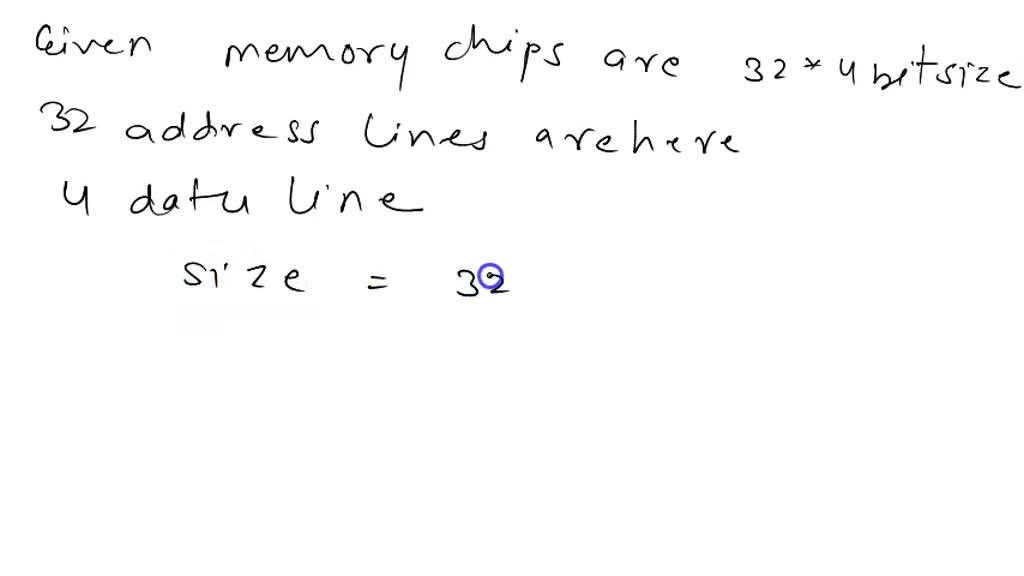 Given memory chips are 32 * 4 bit size
32 address lines are here
4 data line
size = 32